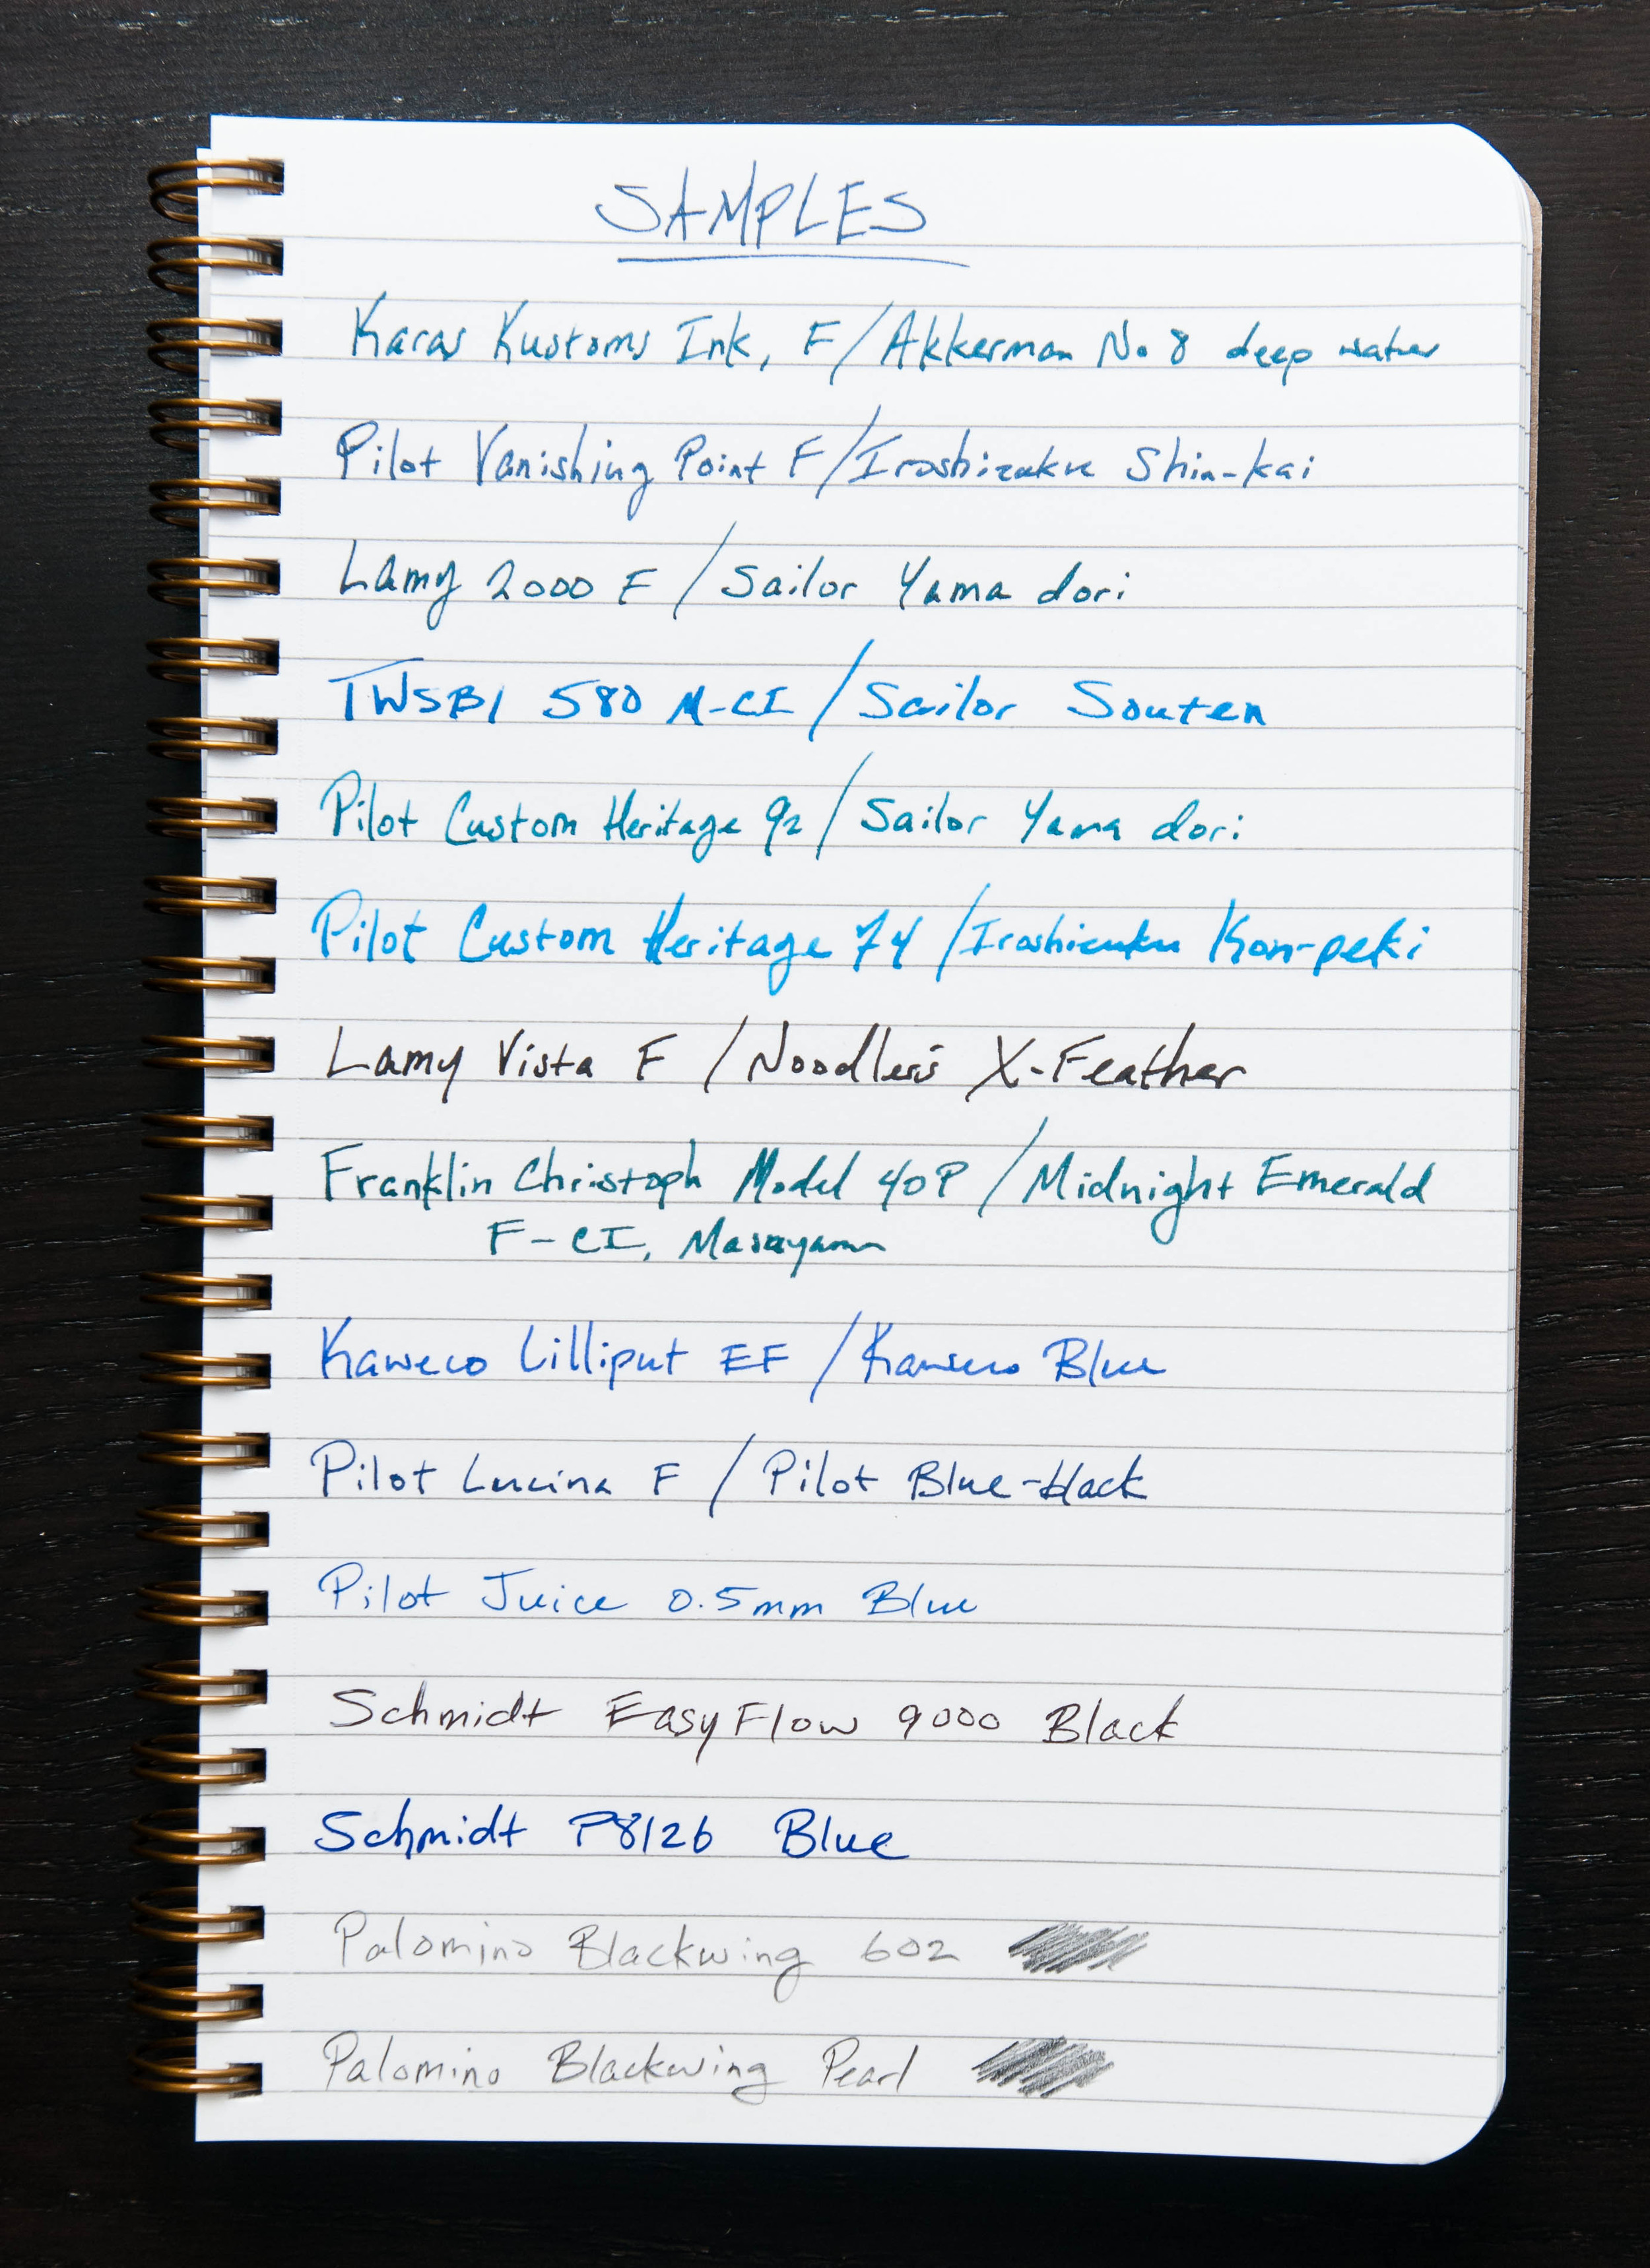 SAMPLES
Karas Kustoms Ink, F/Akkerman No 8 deep water
Pilot Vanishing Point F/Iroshizuku Shin-kai
Lamy 2000 F / Sailor Yama dori
TWSBI 580 M-CI / Sailor Souten
Pilot Custom Heritage 92 / Sailor Yama dori
Pilot Custom Heritage 74 / Iroshizuku Kon-peki
Lamy Vista F / Noodler's X-Feather
Franklin Christoph Model 40P / Midnight Emerald
F-CI, Masuyama
Kaweco Lilliput EF / Kaweco Blue
Pilot Lucina F / Pilot Blue-black
Pilot Juice 0.5mm Blue
Schmidt EasyFlow 9000 Black
Schmidt P8126 Blue
Palomino Blackwing 602
Palomino Blackwing Pearl